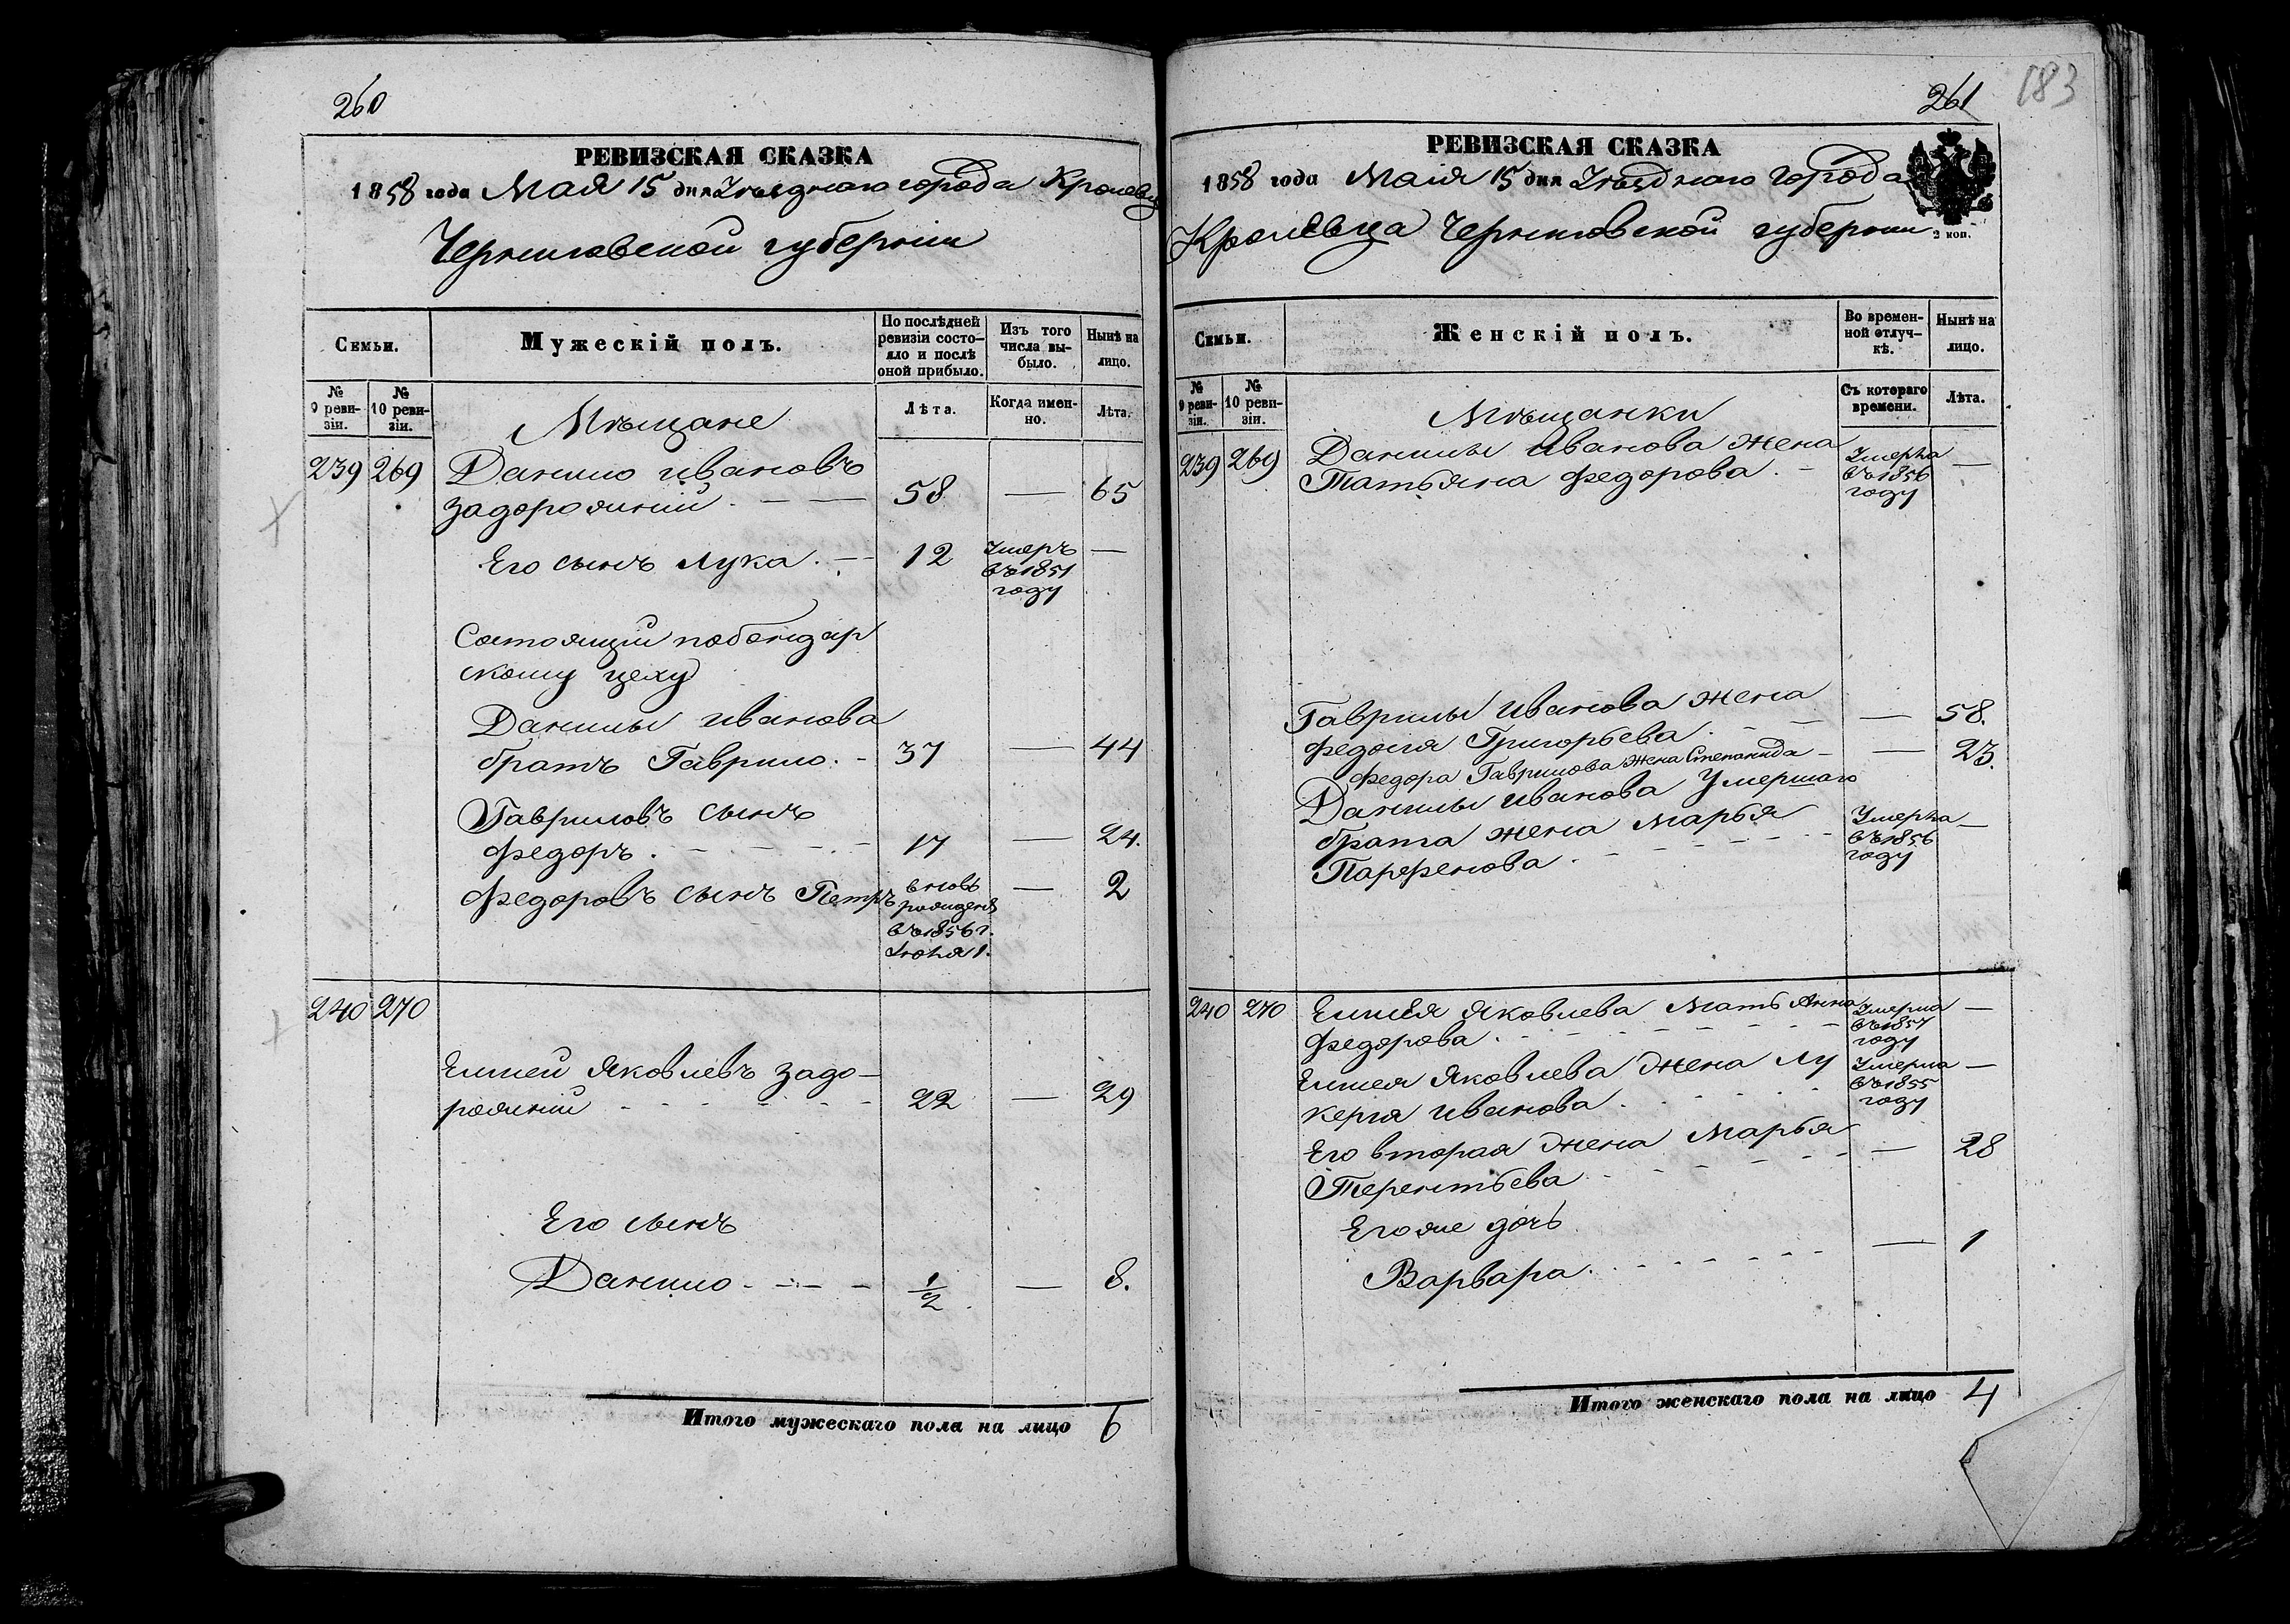 260
РЕВИЗСКАЯ СКАЗКА
1858 года Мая 15 дня Уѣзднаго города Кролевца
Черниговской губерніи
Семьи.
Мужескій полъ.
По послѣдней ревизіи состояло и послѣ оной прибыло.
Изъ того числа выбыло.
Нынѣ на лицо.
№ 9 ревизіи.
№ 10 ревизіи.
Лѣта.
Когда именно.
Лѣта.
Мѣщане
239 269 Данило Ивановъ
Задорожній . — — 58 — 65
Его сынъ Лука . — 12 Умеръ въ 1851 году —
Состоящій по бондар
скому цеху
Данилы Иванова
братъ Гаврило . - 37 — 44
Гавриловъ сынъ
Федоръ . - - - - 17 — 24.
Федоровъ сынъ Петръ вновь рожденъ въ 1856 г. Іюня 1. — 2
240 270
Елисей Яковлевъ Задо-
рожній - - - - - 22 — 29
Его сынъ
Данило - - - - 1/2 — 8.
Итого мужескаго пола на лицо 6
261
183
РЕВИЗСКАЯ СКАЗКА
1858 года Маія 15 дня Уѣзднаго города
Кролевца Черниговской губерніи
2 коп.
Семьи.
Женскій полъ.
Во временной отлучкѣ.
Нынѣ на лицо.
№ 9 ревизіи.
№ 10 ревизіи.
Съ котораго времени.
Лѣта.
Мѣщанки
239 269 Данилы Иванова жена
Татьяна Федорова . - Умерла въ 1856 году —
Гаврилы Иванова жена
Федосія Григорьева . - — — 58.
Федора Гаврилова жена Степанида - — 23.
Данилы Иванова Умершаго
брата жена Марья
Парфенова . - - - - Умерла въ 1856 году —
240 270 Елисея Яковлева Мать Анна
Федорова . - - - - Умерла въ 1857 году —
Елисея Яковлева жена Лу
керія Иванова . Умерла въ 1855 году —
Его вторая жена Марья
Терентьева - - - - — 28
Его же дочь
Варвара . - - - - — 1
Итого женскаго пола на лицо 4